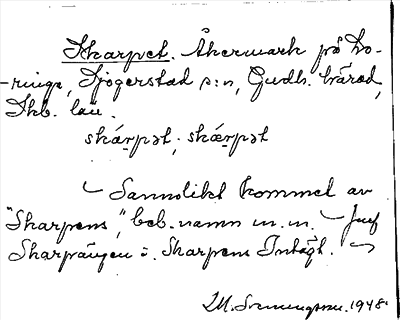 Skarpet. Åkermark på Lo-
-ringa, Sjögerstad s:n, Gudh. härad,
Skb. län.
skárpət, skǽrpət
– Sannolikt kommet av
"Skarpens", beb.namn m.m. – Jmf
Skarpängen o. Skarpens Intägt. –
M. Svenungsson. 1948